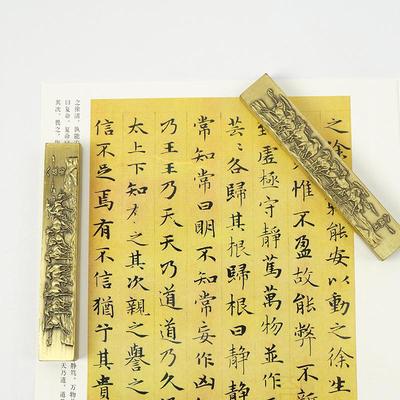 之徐
能安以動之徐生
惟不盈故能弊不
虛極守靜篤萬物並作
芸芸各歸其根歸根曰靜靜
常知常曰明不知常妄作凶
乃王王乃天天乃道道乃久
太上下知有之其次親之譽之
信不足焉有不信猶乎其貴
之徐清，孰能
曰复命。复命
其次，畏之。
静笃。万物
天乃道，道